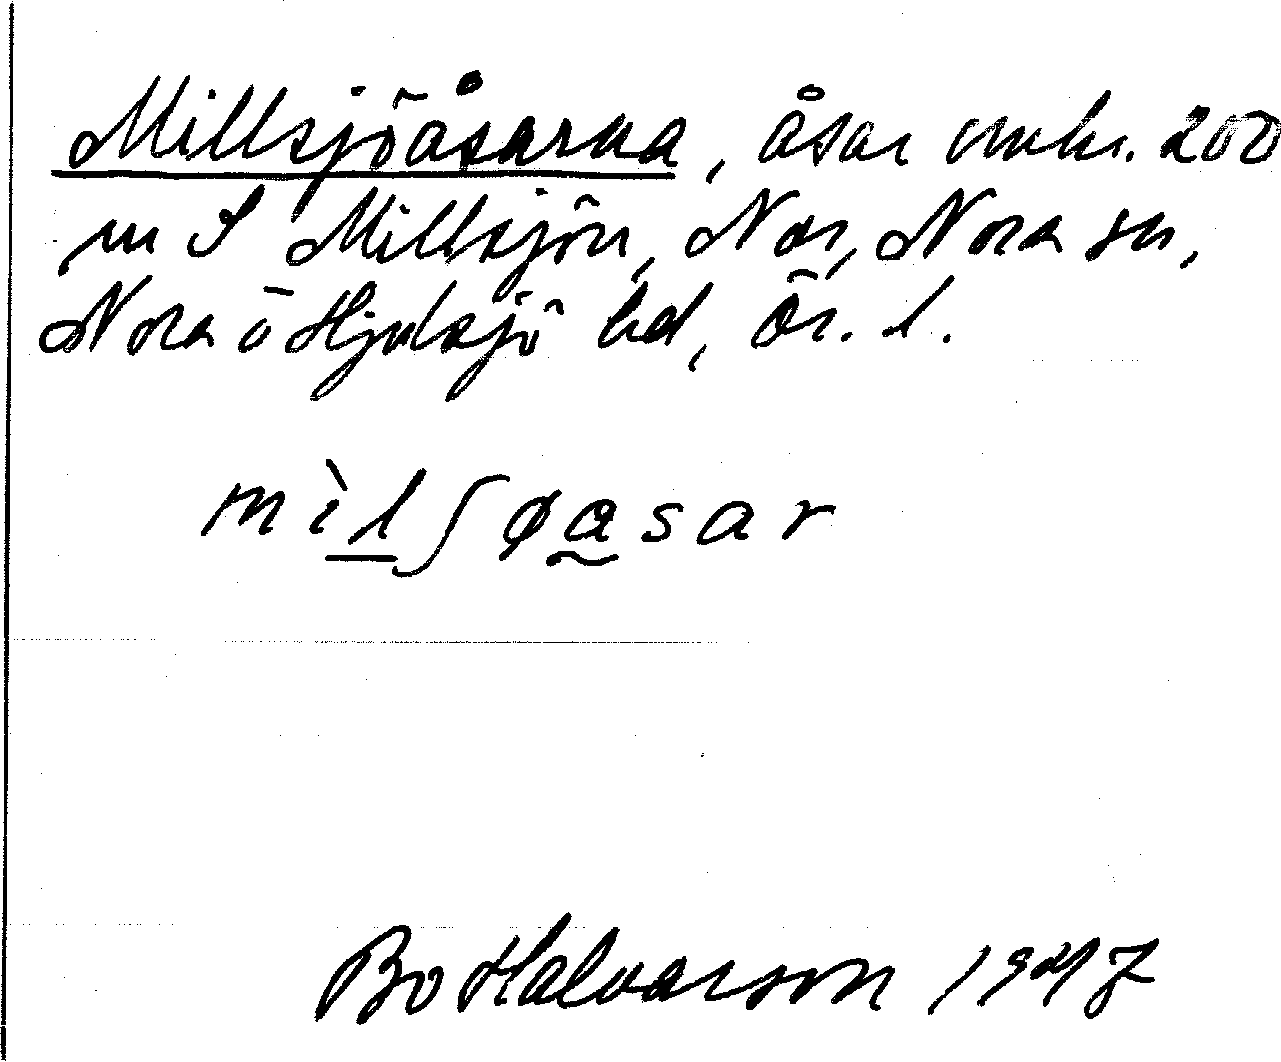 Millsjöåsarna, åsar omkr. 200
m S Millsjön, Nor, Nora sn,
Nora o Hjulsjö hd, Ör. l.
mìlʃøasar
Bo Halvarson 1947